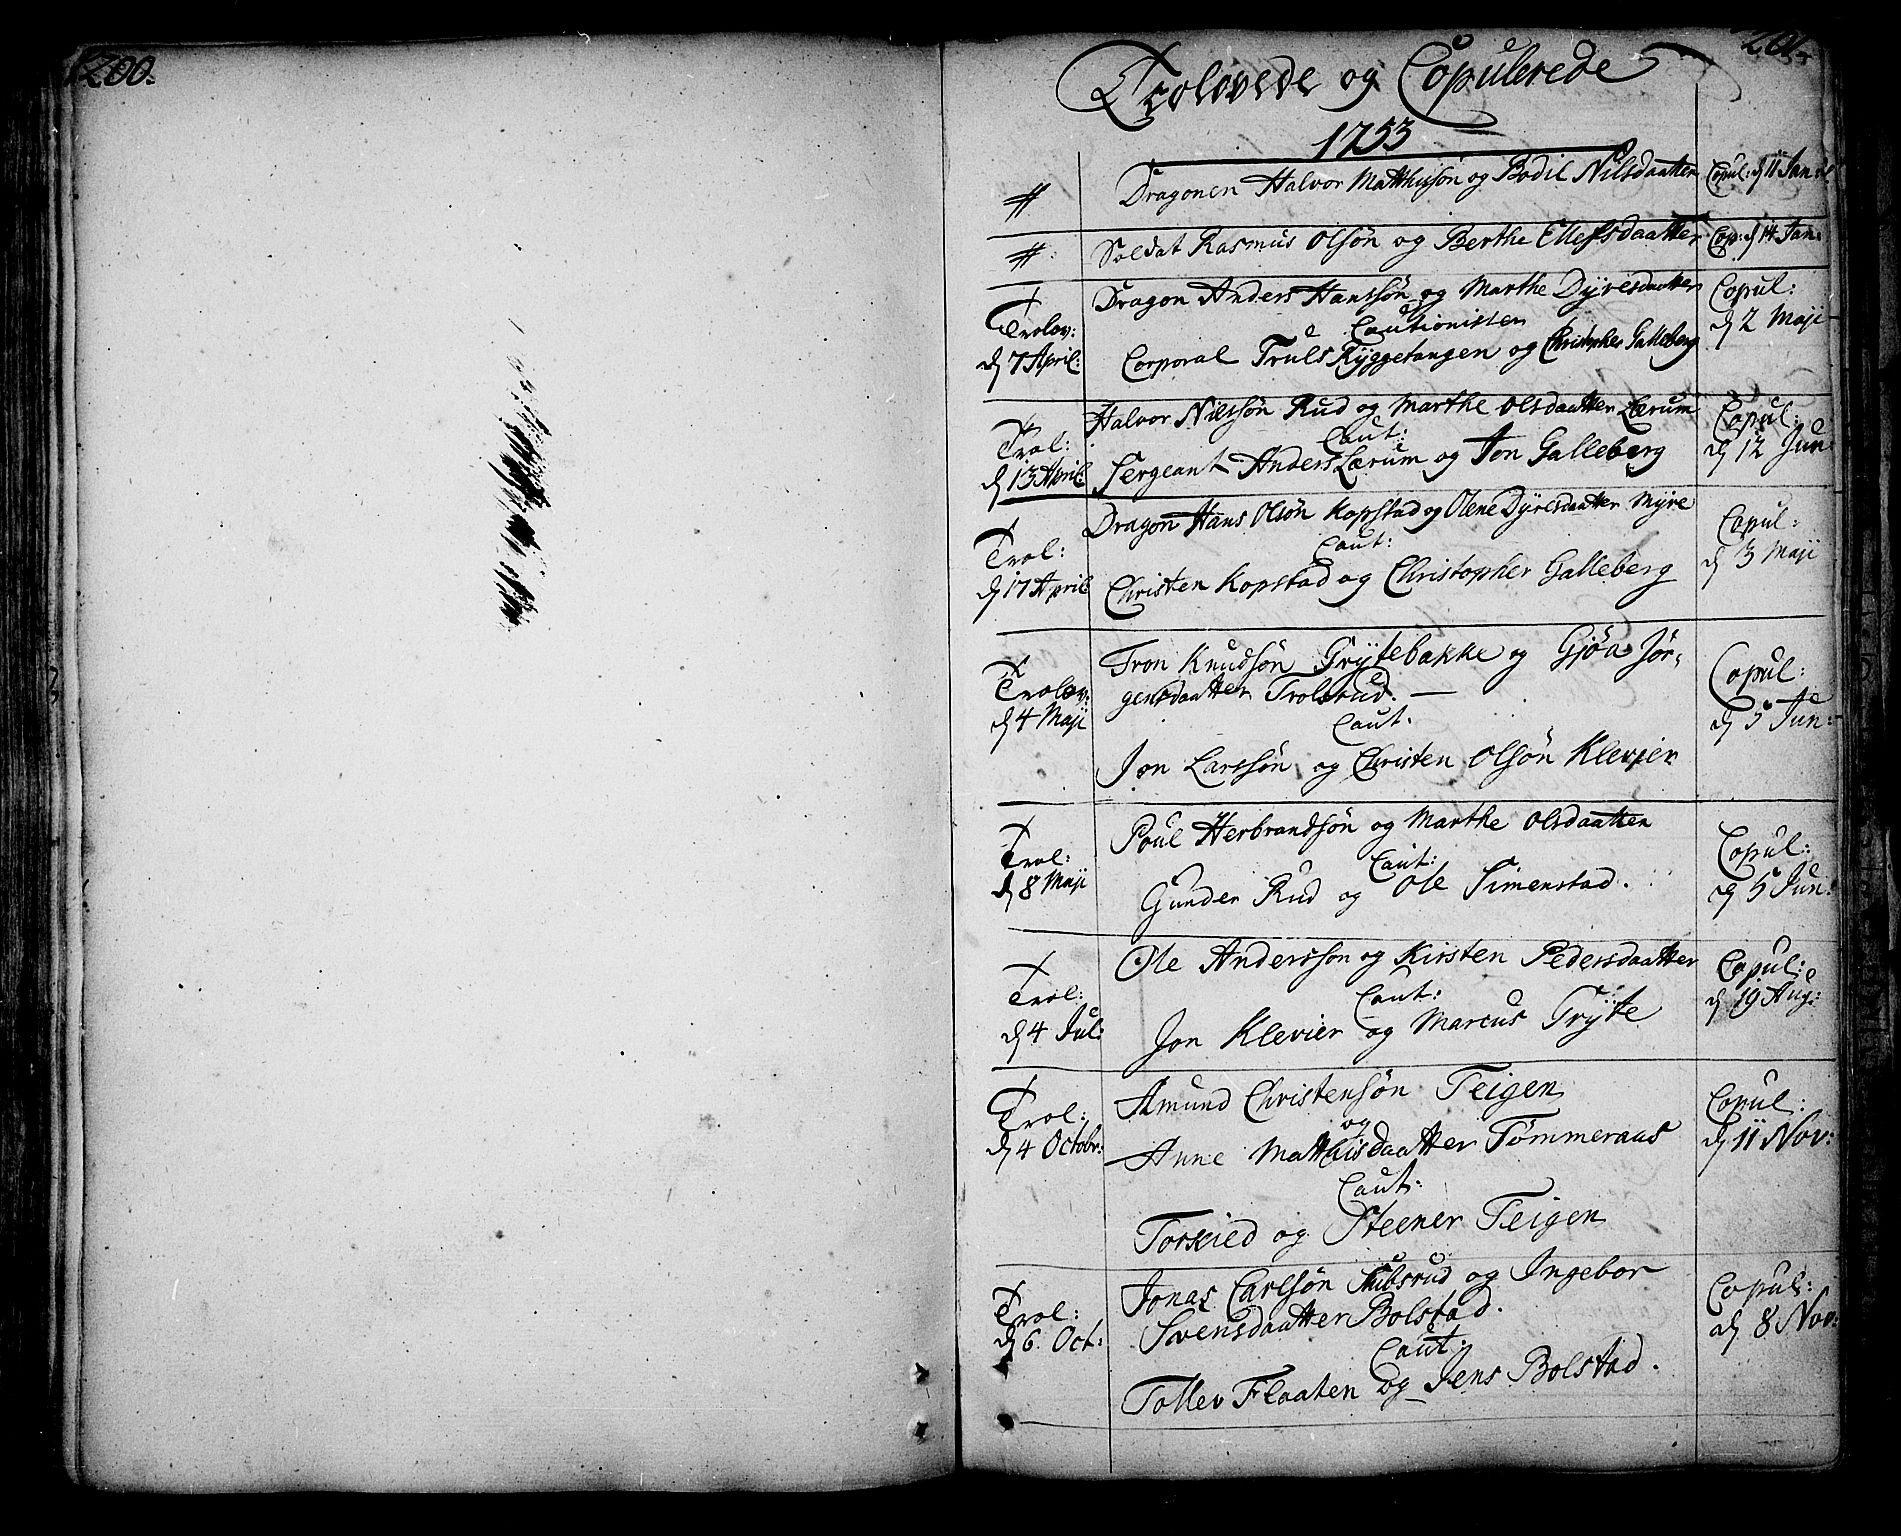 200.
201.
Trolovede og Copulerede
1753
# Dragonen Halvor Matthisøn og Bodil Nilsdaatter Copul: d 11 Jan:
#: Soldat Rasmus Olsøn og Berthe Ellefsdaatter Cop: d 14 Jan:
Dragon Anders Hansøn og Marthe Dyresdaatter Copul:
Trolov: Cautionister d 2 Maji
d 7 April: Corporal Truls Ryggetangen og Christopher Galleberg
Halvor Nilssøn Rud og Marthe Olsdaatter Lærum Copul:
Trol: Caut: d 12 Jun:
d 13 April: Sergeant Anders Lærum og Jon Galleberg
Dragon Hans Olsøn Kopstad og Olene Dyresdaatter Myre Copul:
Trol: Caut: d 3 Maji
d 17 April Christen Kopstad og Christopher Galleberg
Tron Knudsøn Grytebakke og Gjøa Jør-
Trolov: gensdaatter Trolsrud. Copul:
d 4 Maji Caut. d 5 Jun:
Jon Larssøn og Christen Olsøn Klevjer
Poul Herbrandsøn og Marthe Olsdaatter Copul:
Trol: Caut:
d 8 Maji Gunder Rud og Ole Simenstad. d 5 Jun:
Ole Anderssøn og Kirsten Pedersdaatter Copul:
Trol: Caut: d 19 Aug:
d 4 Jul: Jon Klevier og Marcus Gryte
Amund Christensøn Teigen Copul:
Trol: og
d 4 Octobr: Anne Matthisdaatter Tømmeraas d 11 Nov:
Caut:
Torkied og Steener Teigen
Jonas Carlsøn Stubsrud og Ingebor Copul:
Trol: Svensdaatter Bolstad.
d 6. Oct: Caut: d 8 Nov:
Tollev Flaaten og Jens Bolstad.